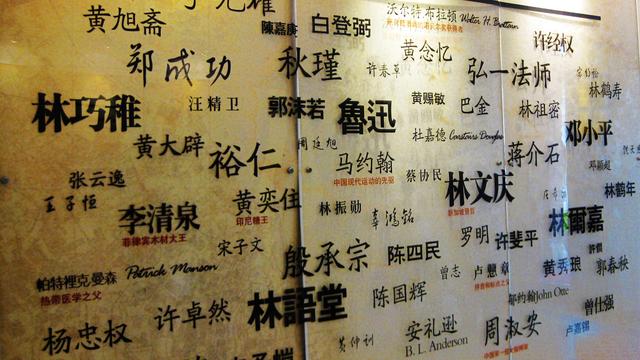 黄旭斋
陳嘉庚
白登弼
沃尔特·布拉顿 Walter H. Brattain
许经权
郑成功
秋瑾
许春草
黄念忆
弘一法师
林鹤寿
林巧稚
汪精卫
郭沫若
魯迅
黄赐敏
巴金
林祖密
邓小平
黄大辟
裕仁
周廷旭
马约翰
中国现代运动的先驱
杜嘉德 Constairs Douglas
蒋介石
邓颖超
张云逸
王子恒
黄奕住
印尼糖王
蔡协民
林文庆
新加坡首富
林鹤年
李清泉
菲律宾木材大王
林振勋
辜鸿铭
林爾嘉
宋子文
殷承宗
陈四民
罗明
许斐平
帕特裡克曼森 Patrick Manson
热带医学之父
曾志
卢戆章
黄秀琅
郭春秧
杨忠权
许卓然
林語堂
陈国辉
郁约翰John Otte
曾仕强
黄仲训
安礼逊
B. L. Anderson
周淑安
卢嘉锡